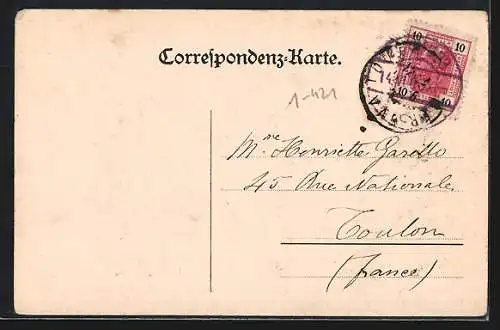 Correspondenz-Karte.
10 10
10 10
1-421
Mme Henriette
45 Rue Nationale
Toulon
(france)